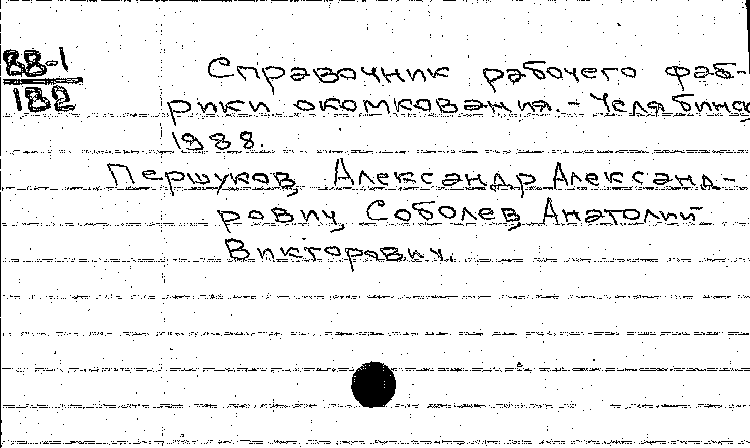 88-1
182
Справочник рабочего фаб-
рики окомкования. - Челябинск
1988.
Першуков, Александр Александ-
рович, Соболев, Анатолий
Викторович.